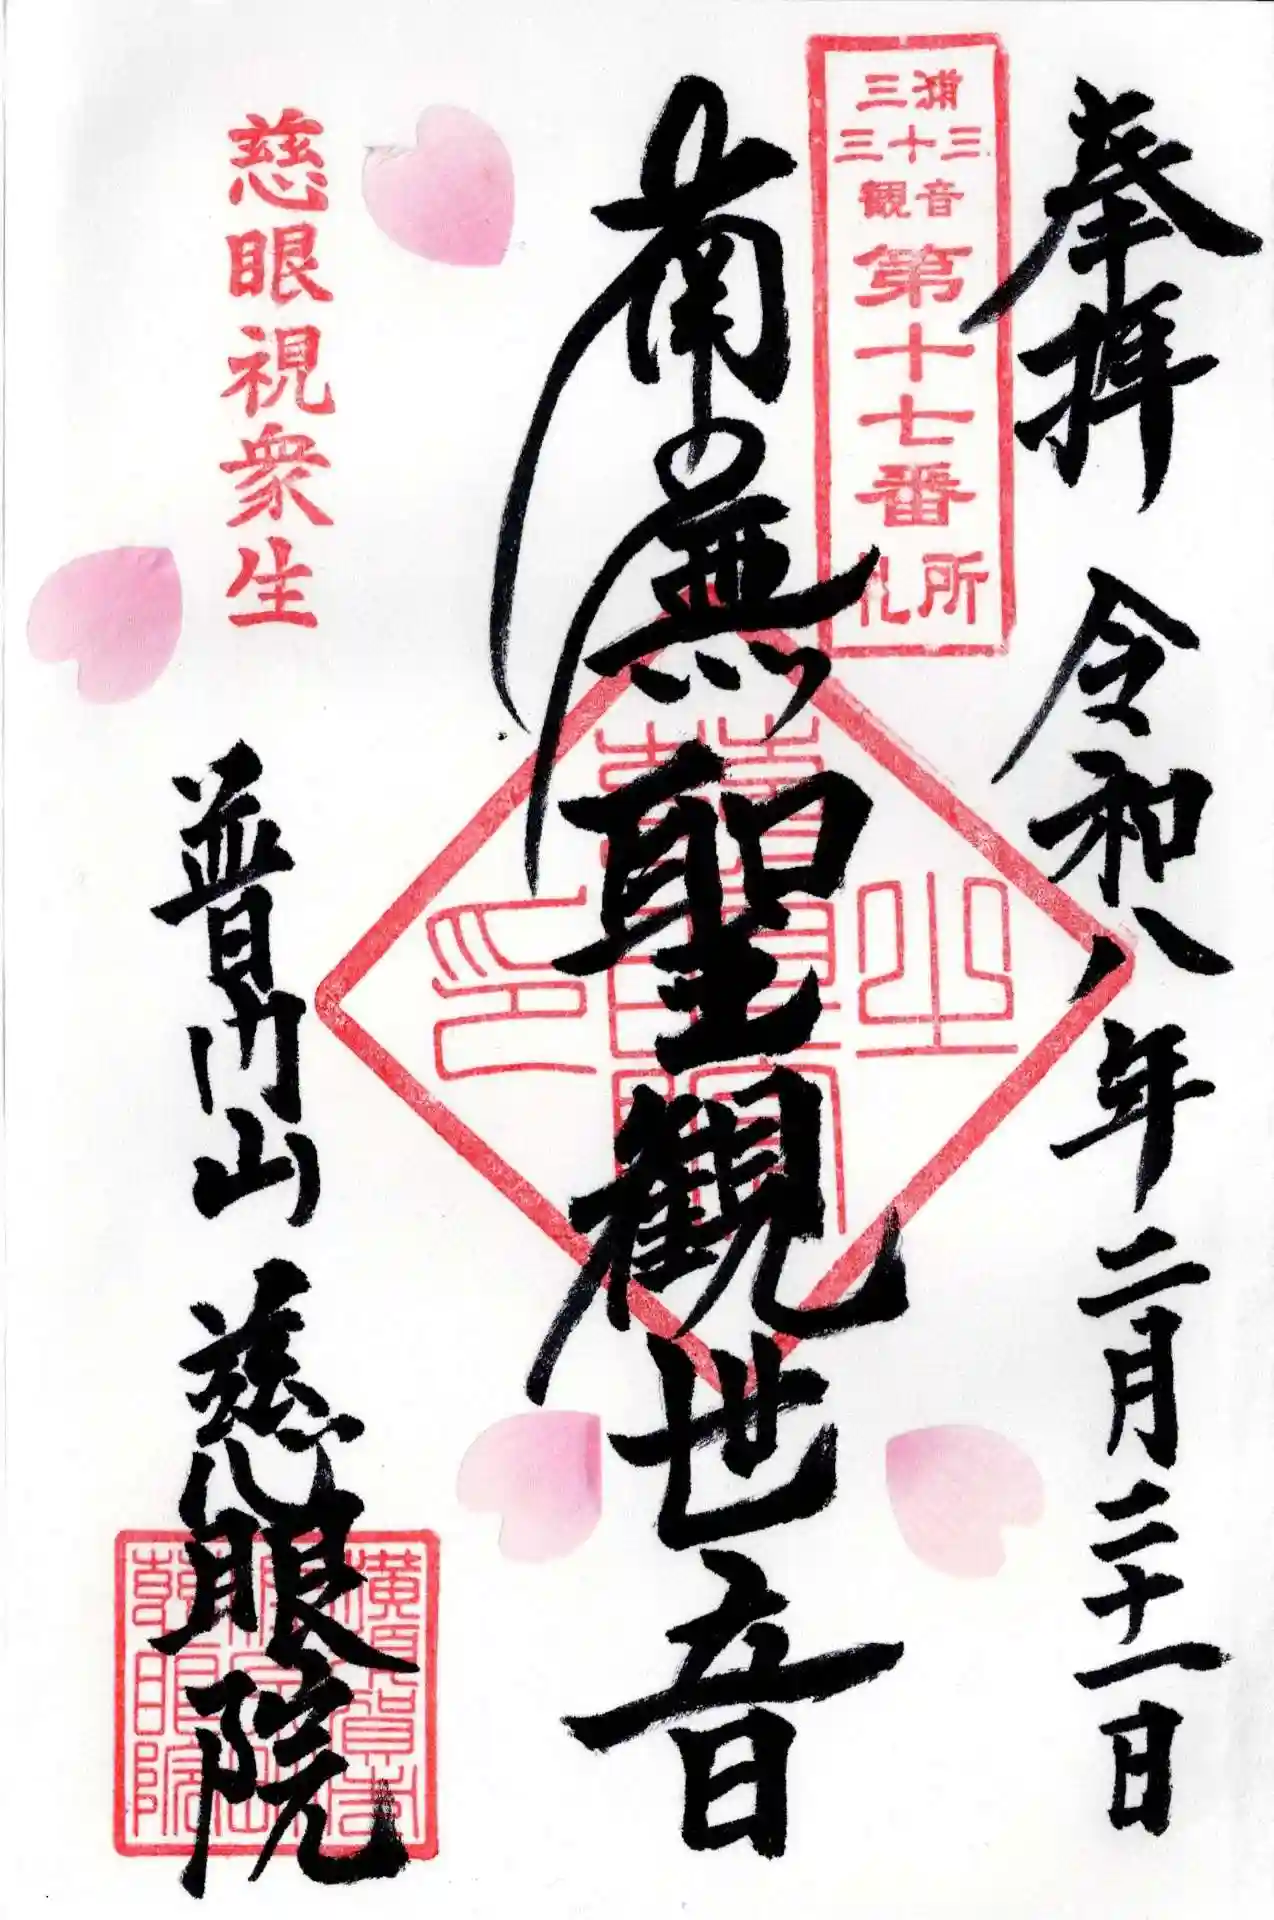 奉拝 令和八年二月二十一日
三浦
三十三
観音
第十七番
札所
南無聖観世音
慈眼視衆生
普門山 慈眼院